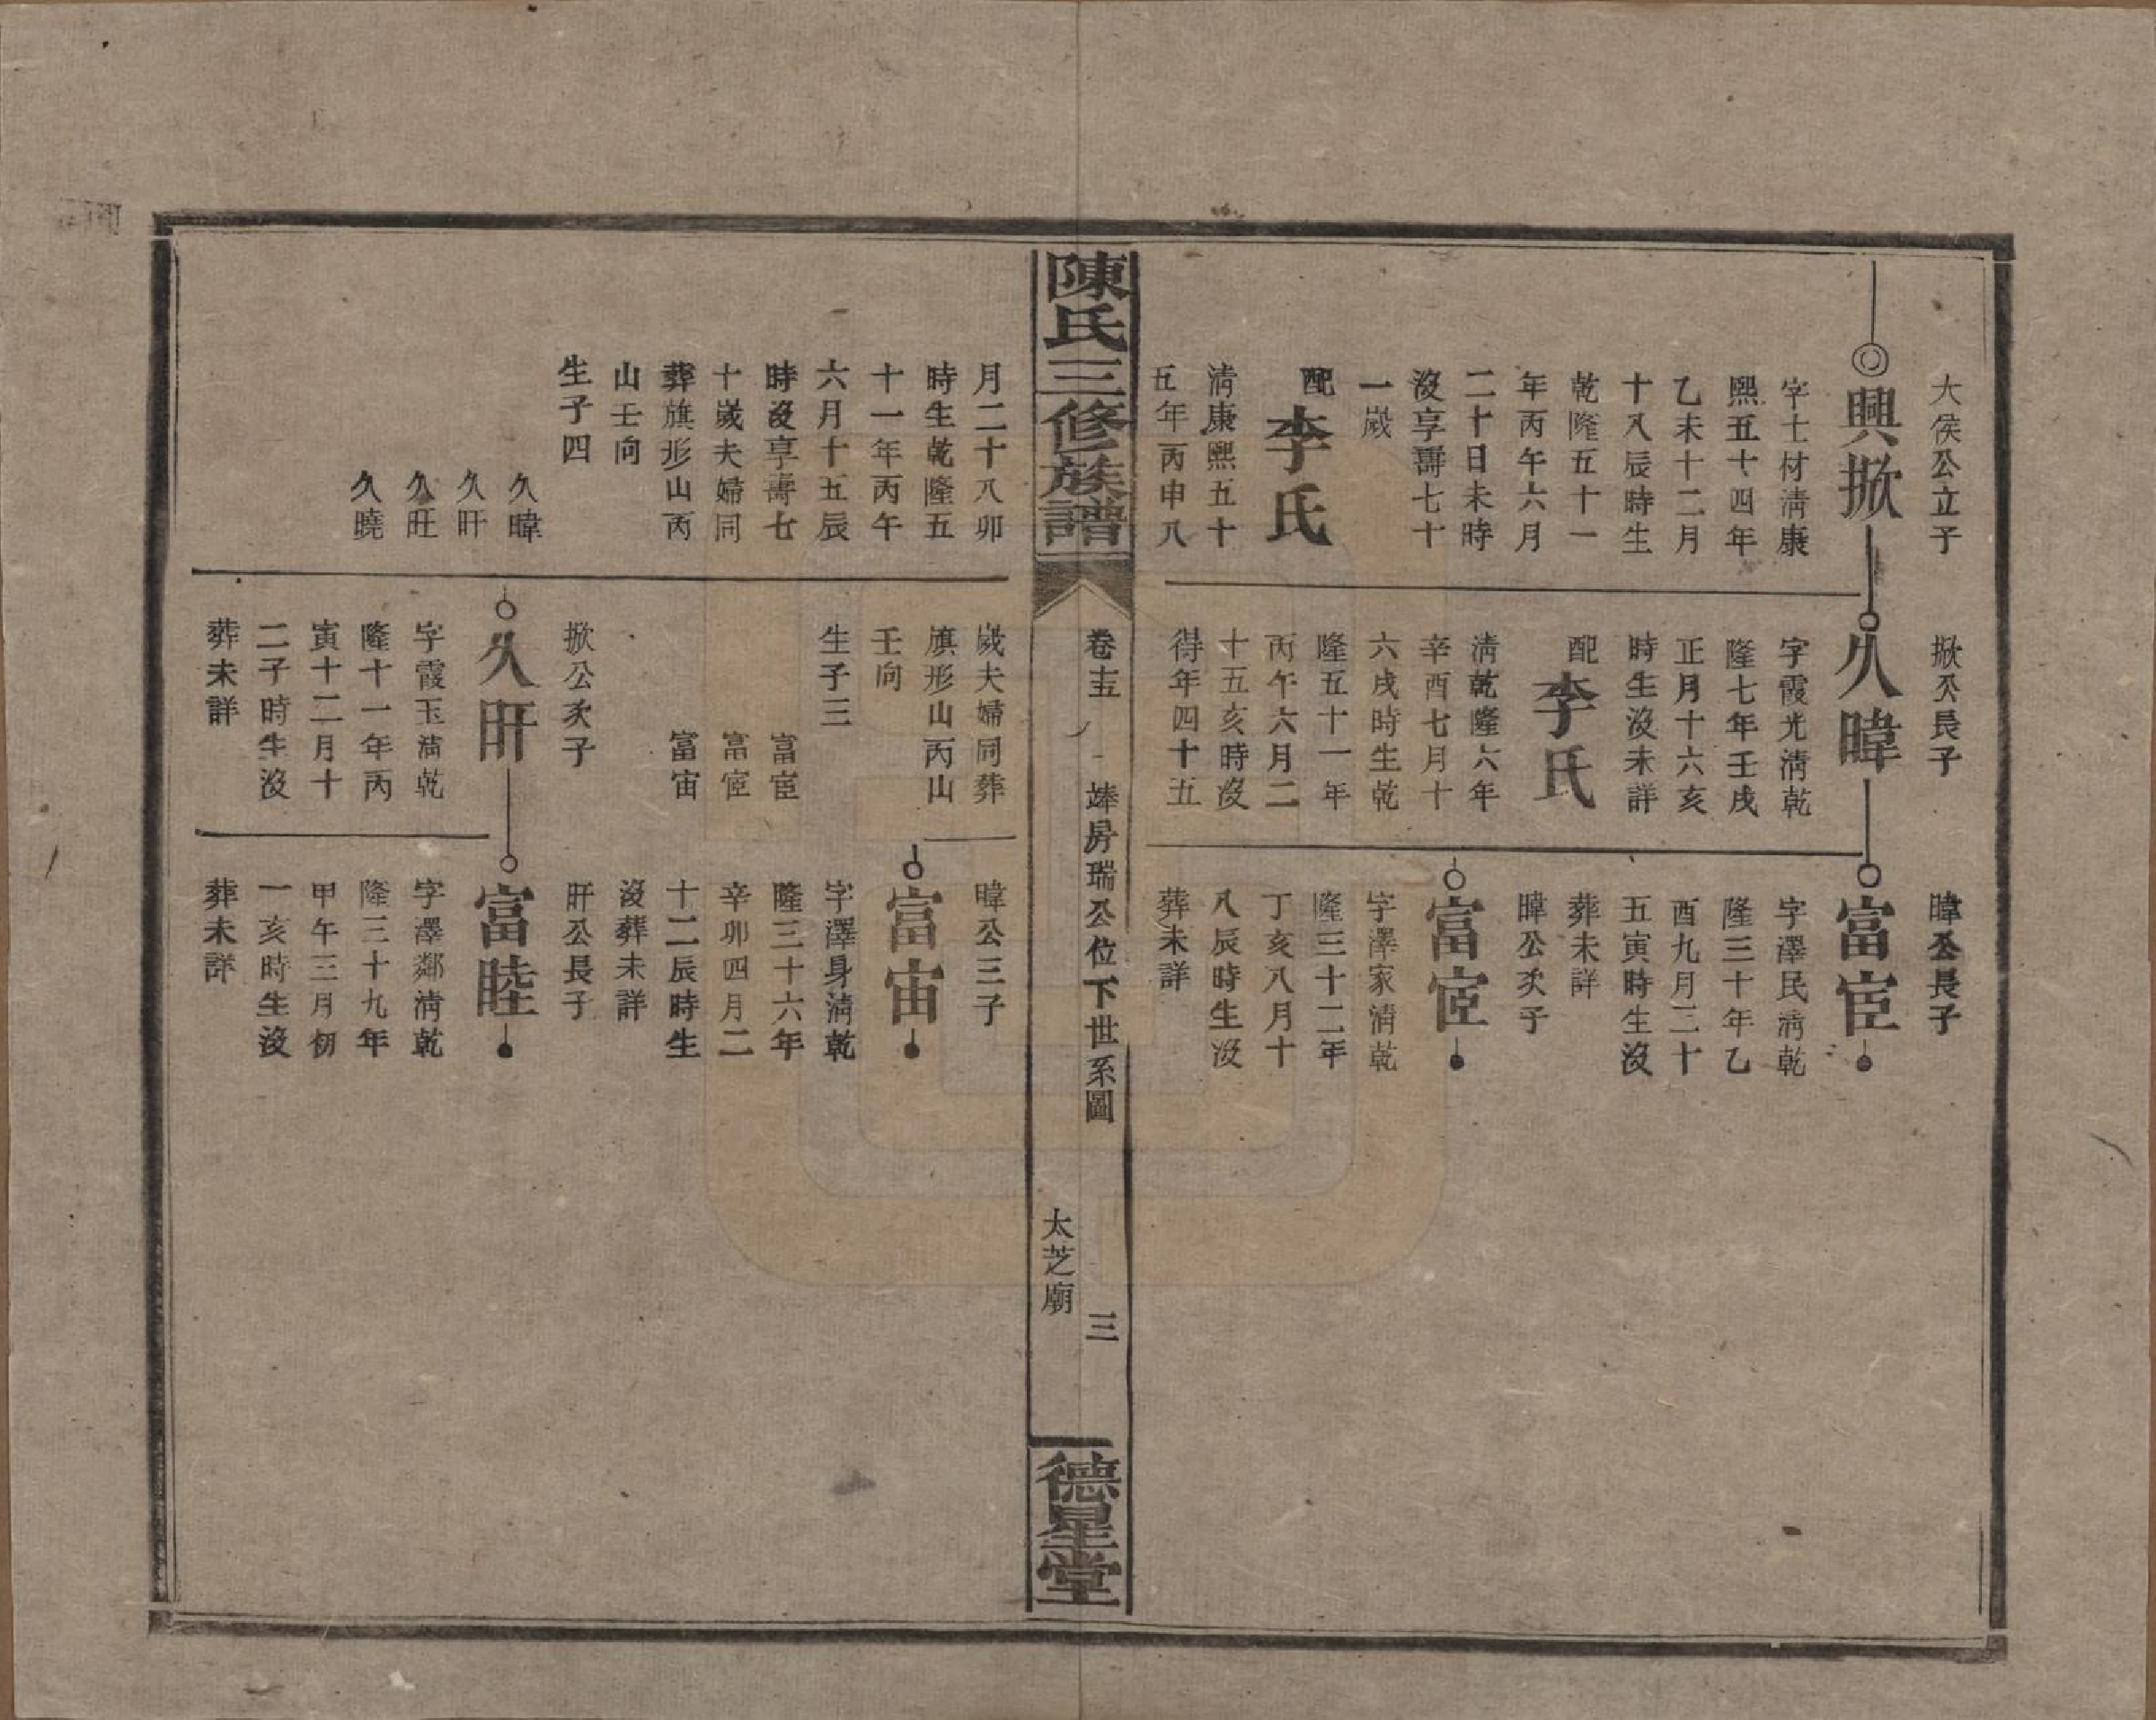 大侯公立子
興掀
字士材清康
熙五十四年
乙未十二月
十八辰時生
乾隆五十一
年丙午六月
二十日未時
沒享壽七十
一歲
配
李氏
清康熙五十
五年丙申八
掀公長子
久暐
字霞光清乾
隆七年壬戌
正月十六亥
時生沒未詳
配
李氏
清乾隆六年
辛酉七月十
六戌時生乾
隆五十一年
丙午六月二
十五亥時沒
得年四十五
暐公長子
富宦
字澤民清乾
隆三十年乙
酉九月二十
五寅時生沒
葬未詳
暐公次子
富宧
字澤家清乾
隆三十二年
丁亥八月十
八辰時生沒
葬未詳
陳氏三修族譜
卷十五
埲房瑞公位下世系圖
三
太芝廟
德星堂
月二十八卯
時生乾隆五
十一年丙午
六月十五辰
時沒享壽七
十歲夫婦同
葬旗形山丙
山壬向
生子四
久暐
久旰
久旺
久曉
歲夫婦同葬
旗形山丙山
壬向
生子三
富宦
富宧
富宙
掀公次子
久旰
字霞玉清乾
隆十一年丙
寅十二月十
二子時生沒
葬未詳
暐公三子
富宙
字澤身清乾
隆三十六年
辛卯四月二
十二辰時生
沒葬未詳
旰公長子
富睦
字澤鄰清乾
隆三十九年
甲午三月初
一亥時生沒
葬未詳